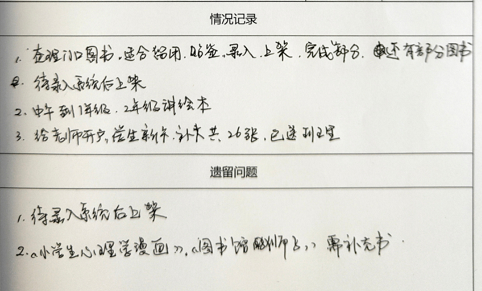 情况记录
1. 查理门口图书，适合留用，贴签，录入，上架，完成部分，还有部分图书
待录入系统后上架
2. 中午到1年级、2年级讲绘本
3. 给老师开户，学生新卡、补卡共26张，已送到班
遗留问题
1. 待录入系统后上架
2.《小学生心理学漫画》，《图书馆 师 》需补充书